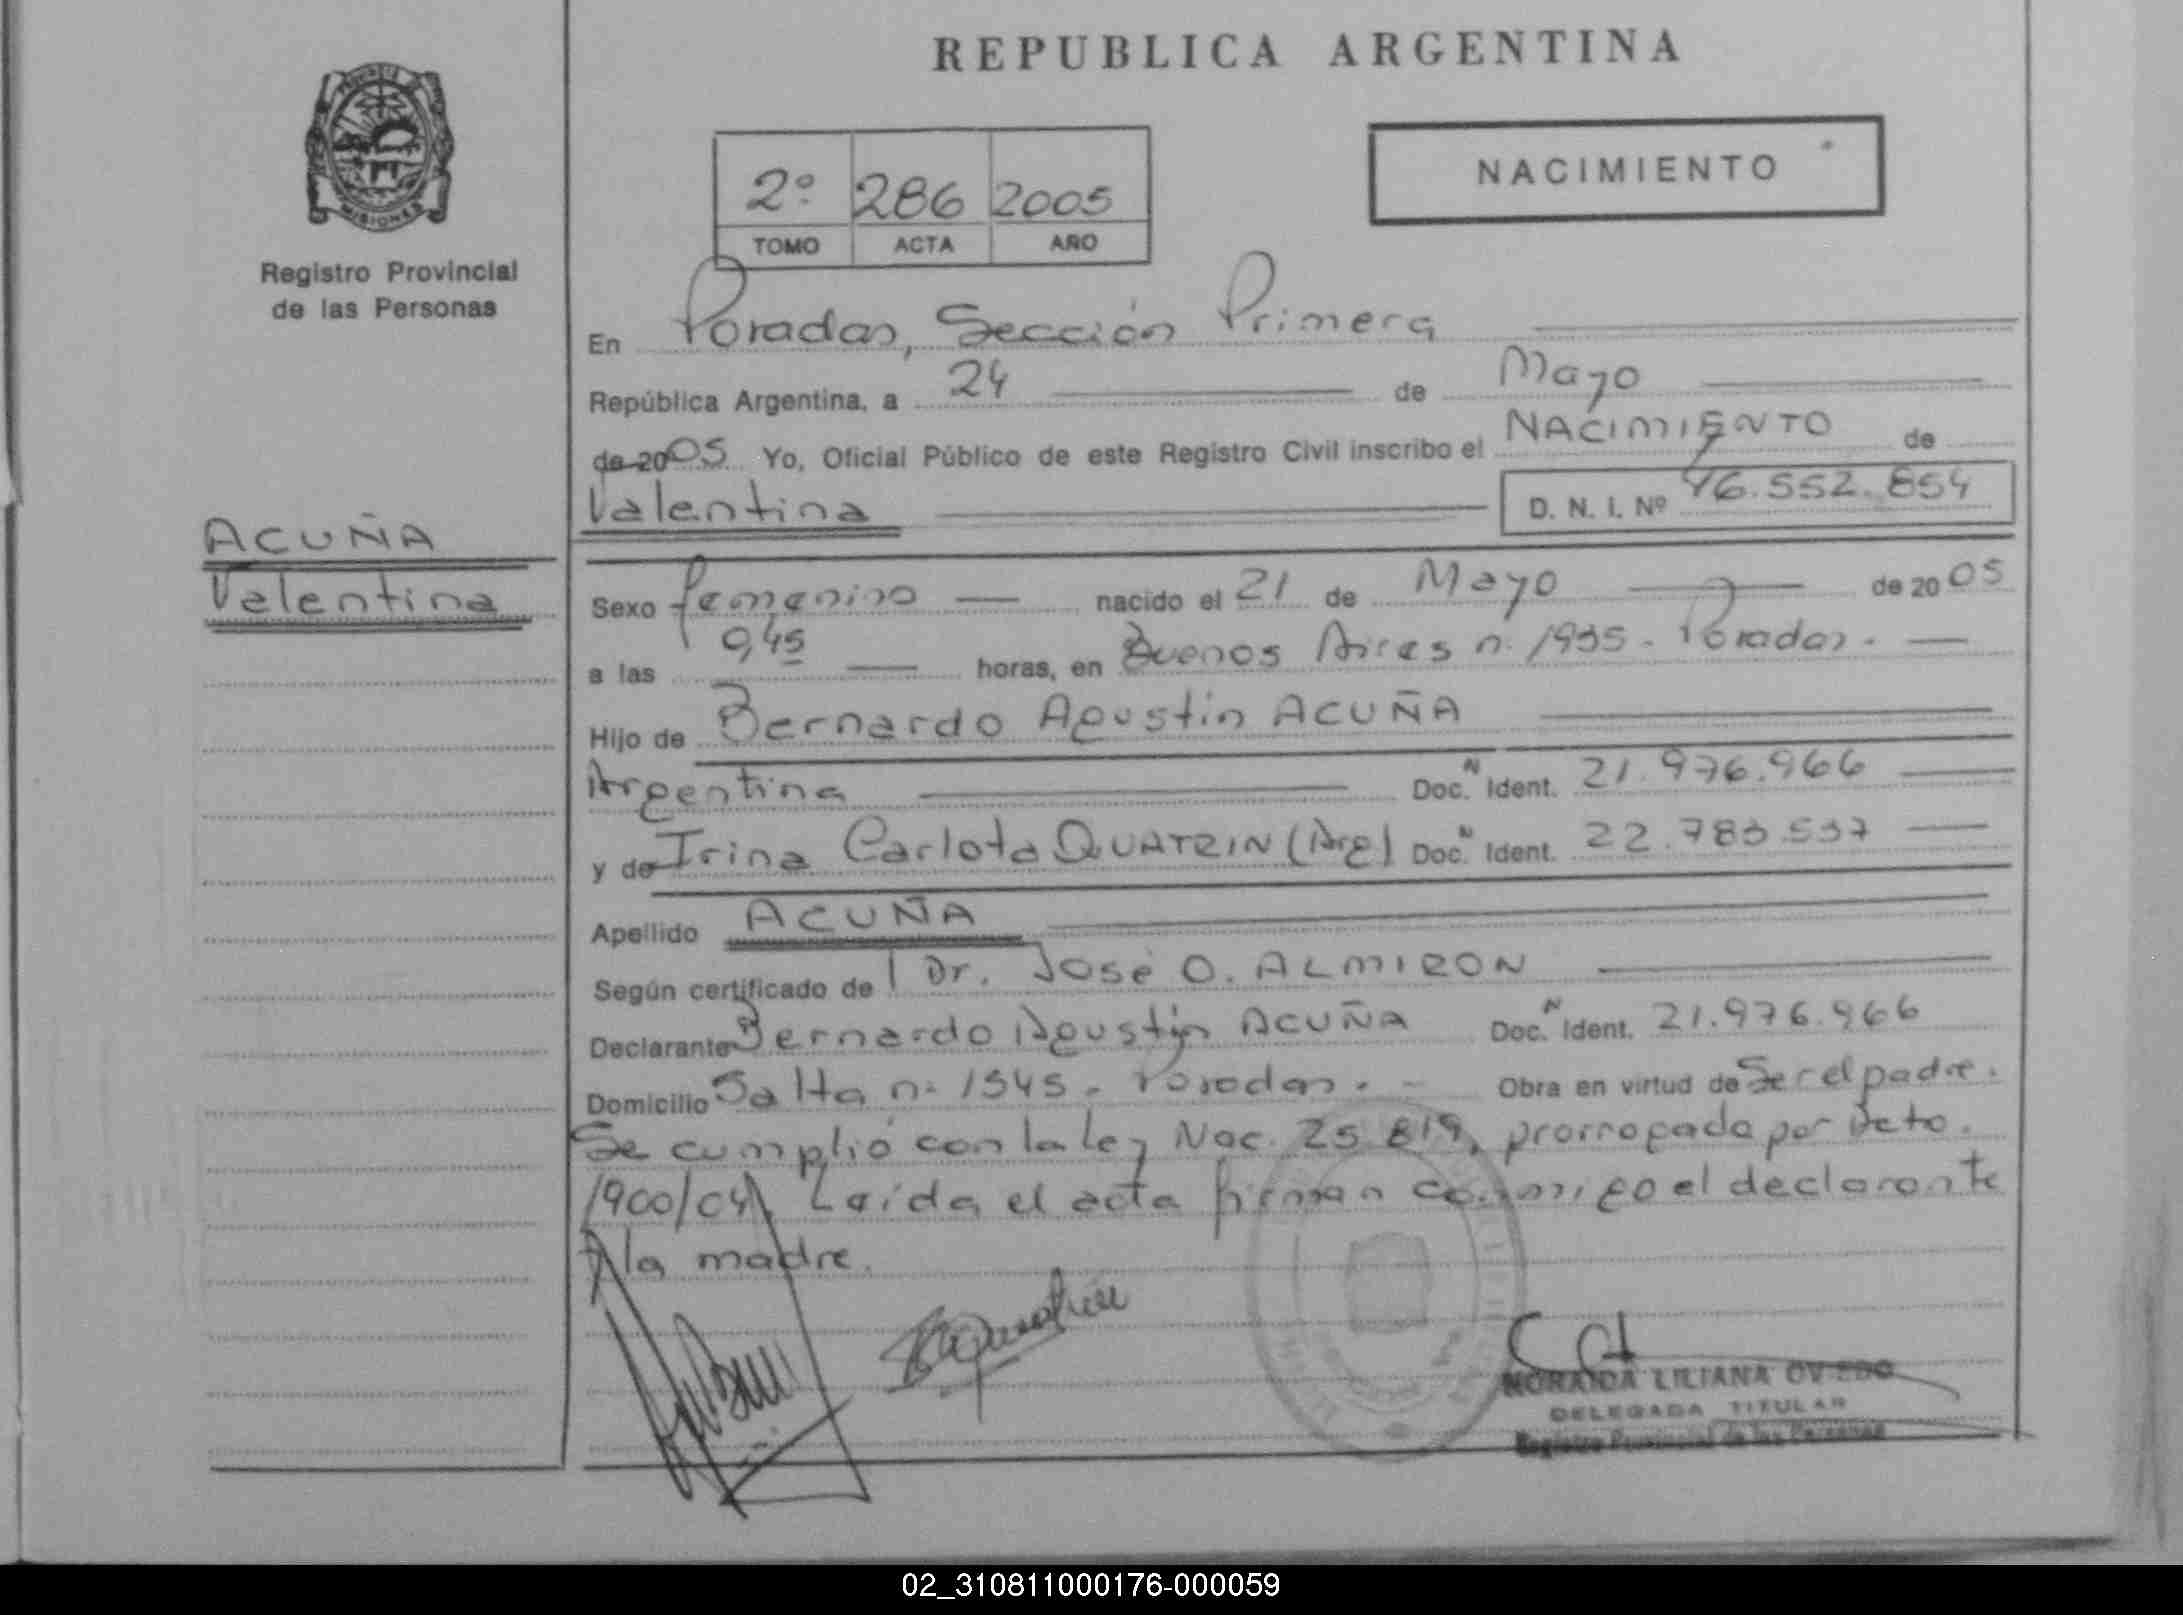 REPUBLICA ARGENTINA
NACIMIENTO
2º 286 2005
TOMO ACTA AÑO
MISIONES
Registro Provincial
de las Personas
En Posadas, Sección Primera
República Argentina, a 24 de Mayo
de 2005 Yo, Oficial Público de este Registro Civil inscribo el NACIMIENTO de
Valentina D. N. I. Nº 46.552.854
ACUÑA
Valentina
Sexo femenino nacido el 21 de Mayo de 2005
a las 0,45 horas, en Buenos Aires n: 1935 - Posadas. -
Hijo de Bernardo Agustin ACUÑA
Argentina Doc. N Ident. 21.976.966
y de Irina Carlota QUATRIN (Arg) Doc. N Ident. 22.783.537
Apellido ACUÑA
Según certificado de Dr. José O. ALMIRON
Declarante Bernardo Agustin ACUÑA Doc. N Ident. 21.976.966
Domicilio Salta n: 1545 - Posadas. - Obra en virtud de Ser el padre.
Se cumplió con la ley Nac. 25 819, prorrogada por Dcto.
1900/04. Leída el acta firman conmigo el declarante
y la madre.
NORAIDA LILIANA OVIEDO
DELEGADA TITULAR
Registro Provincial de las Personas
02_310811000176-000059